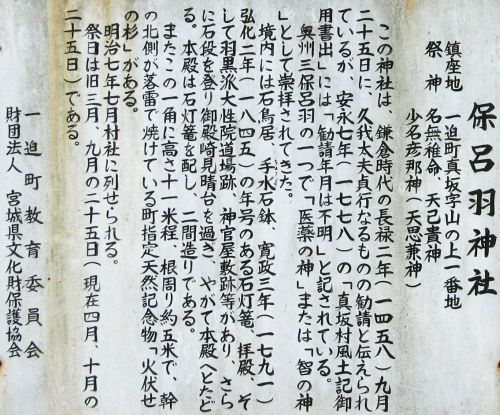 保呂羽神社
鎮座地　一迫町真坂字山の上一番地
祭神　名無稚命、天己貴神
少名彦那神（天思兼神）
この神社は、鎌倉時代の長禄二年（一四五八）九月
二十五日に、久我太夫貞行なるものの勧請と伝えられ
ているが、安永七年（一七七八）の「真坂村風土記御
用書出」には「勧請年月は不明」と記されている。
奥州三保呂羽の一つで「医薬の神」または「智の神
」として崇拝されてきた。
境内には石鳥居、手水石鉢、寛政三年（一七九一）
弘化二年（一八四五）の年号のある石灯篭、拝殿、そ
して羽黒派大性院道場跡、神官屋敷跡等があり、さら
に石段を登り御殿崎見晴台を過ぎ、やがて本殿へとたど
る。本殿は石灯篭を配し、二間造りである。
またこの一角に高さ十一米程、根周り約五米で、幹
の北側が落雷で焼けている町指定天然記念物「火伏せ
の杉」がある。
明治七年七月村社に列せられる。
祭日は旧三月、九月の二十五日（現在四月、十月の
二十五日）である。
一迫町教育委員会
財団法人　宮城県文化財保護協会